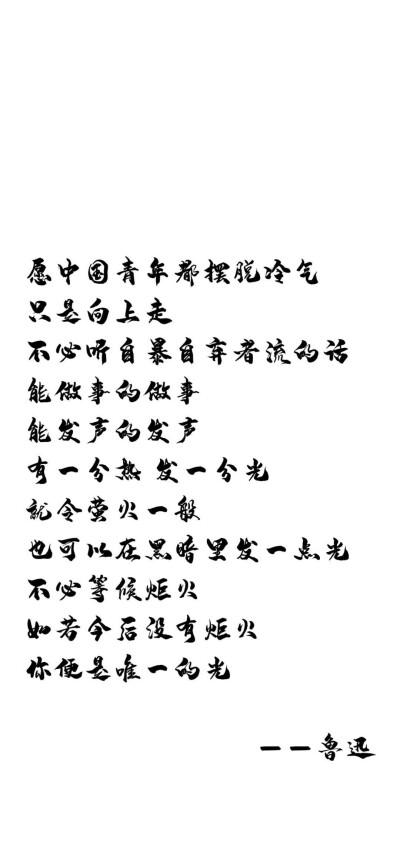 愿中国青年都摆脱冷气
只是向上走
不必听自暴自弃者流的话
能做事的做事
能发声的发声
有一分热 发一分光
就令萤火一般
也可以在黑暗里发一点光
不必等候炬火
如若今后没有炬火
你便是唯一的光
——鲁迅